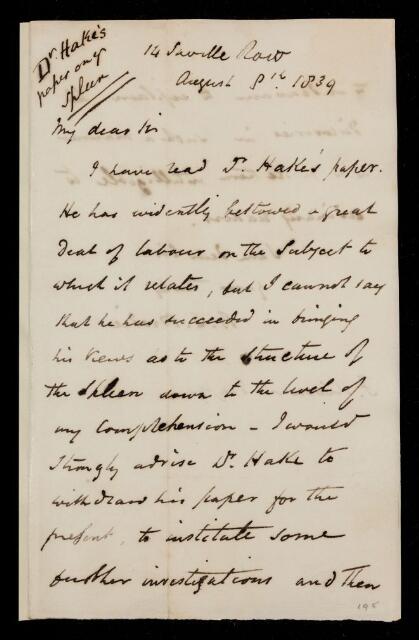 Dr. Hake's
paper on ye
Spleen
14 Saville Row
August 8th 1839
My dear Sir
I have read Dr. Hake's paper.
He has evidently bestowed a great
deal of labour on the subject to
which it relates, but I cannot say
that he has succeeded in bringing
his views as to the structure of
the spleen down to the level of
my comprehension – I would
strongly advise Dr. Hake to
withdraw his paper for the
present, to institute some
further investigations and then
195